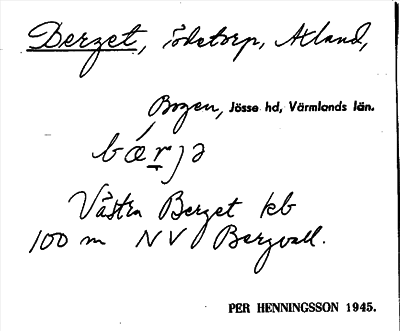 Berget, ödetorp, Åxland,
Bogen, Jösse hd, Värmlands län.
bærjə
Västra Berget kb
100 m NV Bergvall.
PER HENNINGSSON 1945.